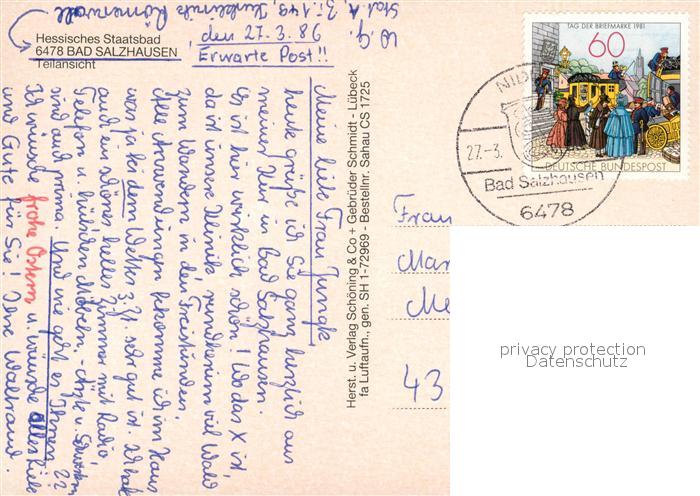 Hessisches Staatsbad
6478 BAD SALZHAUSEN
Teilansicht
den 27.3.86
Erwarte Post!!
Meine liebe Frau Jungk
heute grüße ich Sie ganz herzlich aus
meiner Kur in Bad Salzhausen.
Es ist hier wirklich schön! Wo das X ist
da ist unsere Klinik rundherum viel Wald
zum Wandern in den Freistunden.
Alle Anwendungen bekomme ich im Haus
was ja bei dem Wetter z. Zt. sehr gut ist. Ich habe
auch ein schönes helles Zimmer mit Radio,
Telefon u. hübschen Möbeln. Ärzte u. Schwestern
sind und prima. Und wie geht es Ihnen??
Ich wünsche frohe Ostern u. wünsche alles Liebe
und Gute für Sie! Ihre Waltraud.
Herst. u. Verlag Schöning & Co + Gebrüder Schmidt - Lübeck
fa Luftaufn., gen. SH 1-72969 - Bestellnr. Sahau CS 1725
TAG DER BRIEFMARKE 1981
60
DEUTSCHE BUNDESPOST
27.-3.
Bad Salzhausen
6478
Frau
Mar
Me
43
privacy protection
Datenschutz